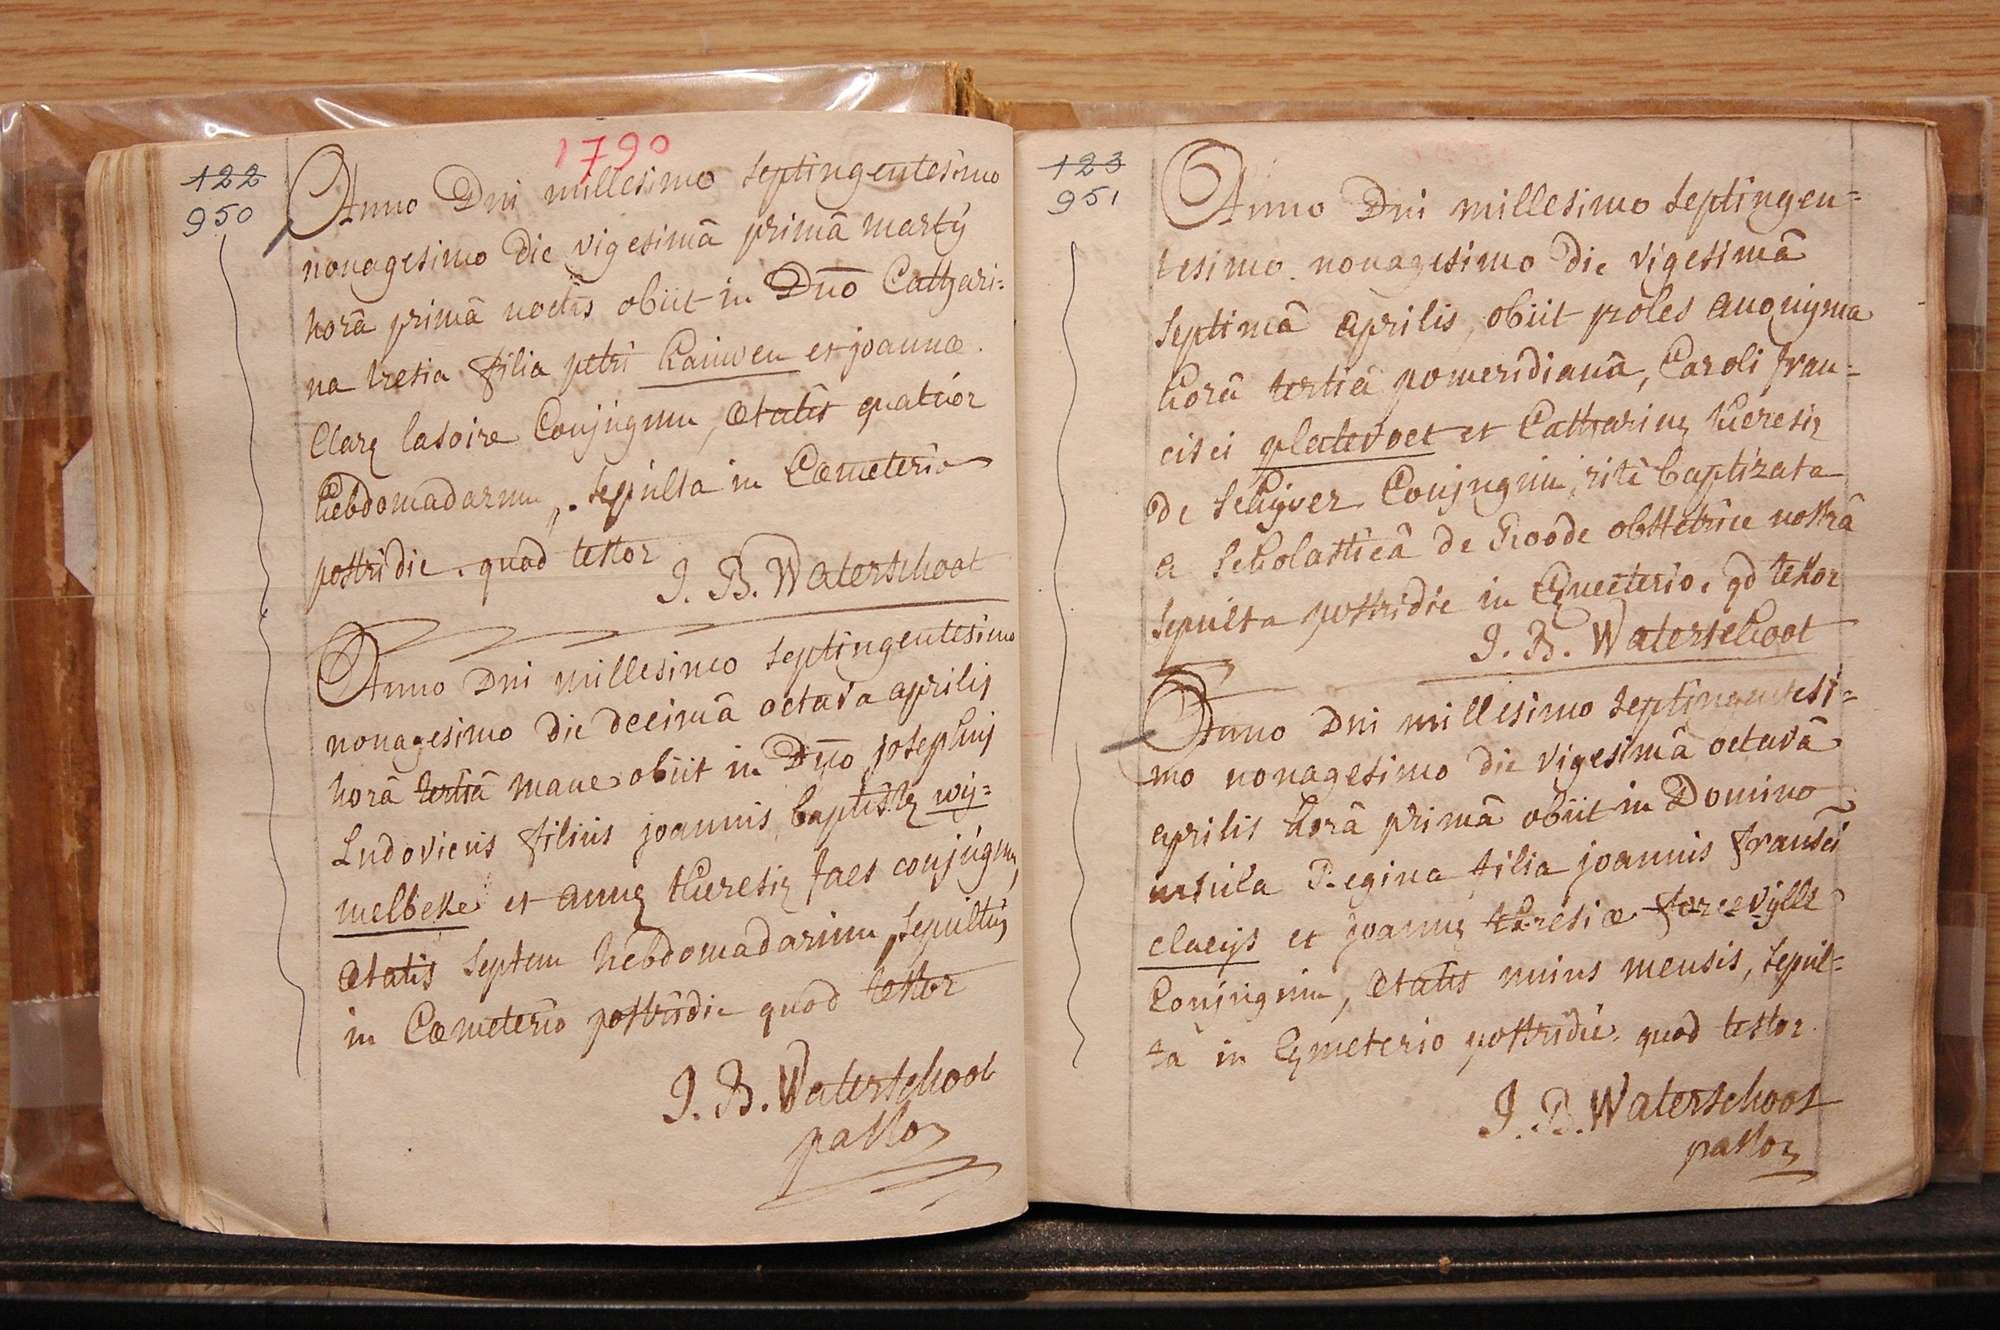 1790
122
950
Anno Dni millesimo septingentesimo
nonagesimo die vigesimâ primâ martÿ
horâ primâ noctis obiit in Dno Cathari=
na tresia filia petri Cauwen et joannæ
Claræ lasoire Conjugum, ætatis quatuor
hebdomadarum, sepulta in Cœmeterio
postridie. quod testor
J. B. Waterschoot
Anno Dni millesimo septingentesimo
nonagesimo die decimâ octava aprilis
horâ tertiâ mane obiit in Dno josephus
Ludovicus filius joannis baptistæ wÿ=
melbeke et annæ theresiæ faes conjugum,
ætatis septem hebdomadarum, sepultus
in Cœmeterio postridie quod testor
J. B. Waterschoot
pastor
123
951
Anno Dni millesimo septingen=
tesimo nonagesimo die vigesimâ
septimâ aprilis, obiit proles anonyma
horâ tertiâ pomeridianâ, Caroli fran=
cisci platevoet et Catharinæ theresiæ
de schÿver Conjugum, ritè baptizata
a scholasticâ de Roode obstetrice nostrâ
sepulta postridie in Cæmeterio. qd testor
J. B. Waterschoot
Anno Dni millesimo septingentesi=
mo nonagesimo die vigesimâ octavâ
aprilis horâ primâ obiit in Domino
ursula Regina filia joannis fransci
claeijs et joannæ theresiæ
Conjugum, ætatis unius mensis, sepul=
ta in Cæmeterio postridie. quod testor.
J. B. Waterschoot
pastor